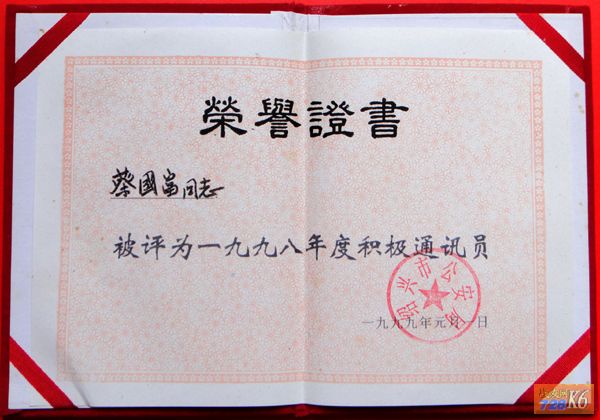 榮譽證書
蔡國富同志
被评为一九九八年度积极通讯员
绍兴市公安局
一九九九年元月一日
K6